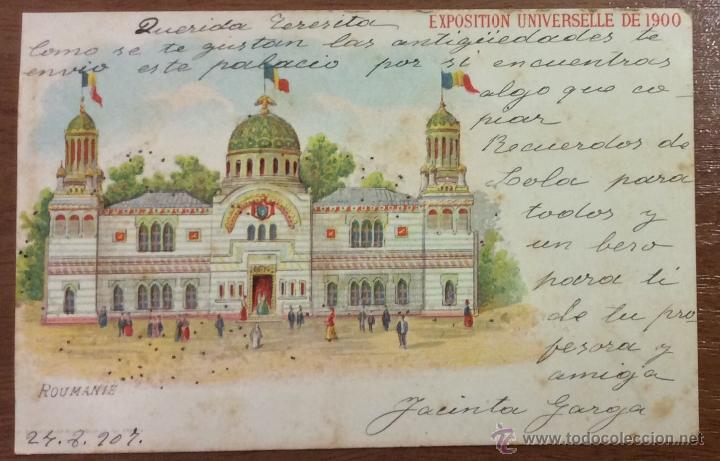 EXPOSITION UNIVERSELLE DE 1900
Querida Teresita
Como se te gustan las antigüedades te
envio este palacio por si encuentras
algo que co-
piar
Recuerdos de
Lola para
todos y
un beso
para ti
de tu pro-
fesora y
amiga
Jacinta Garga
ROUMANIE
24.8.907.
www.todocoleccion.net